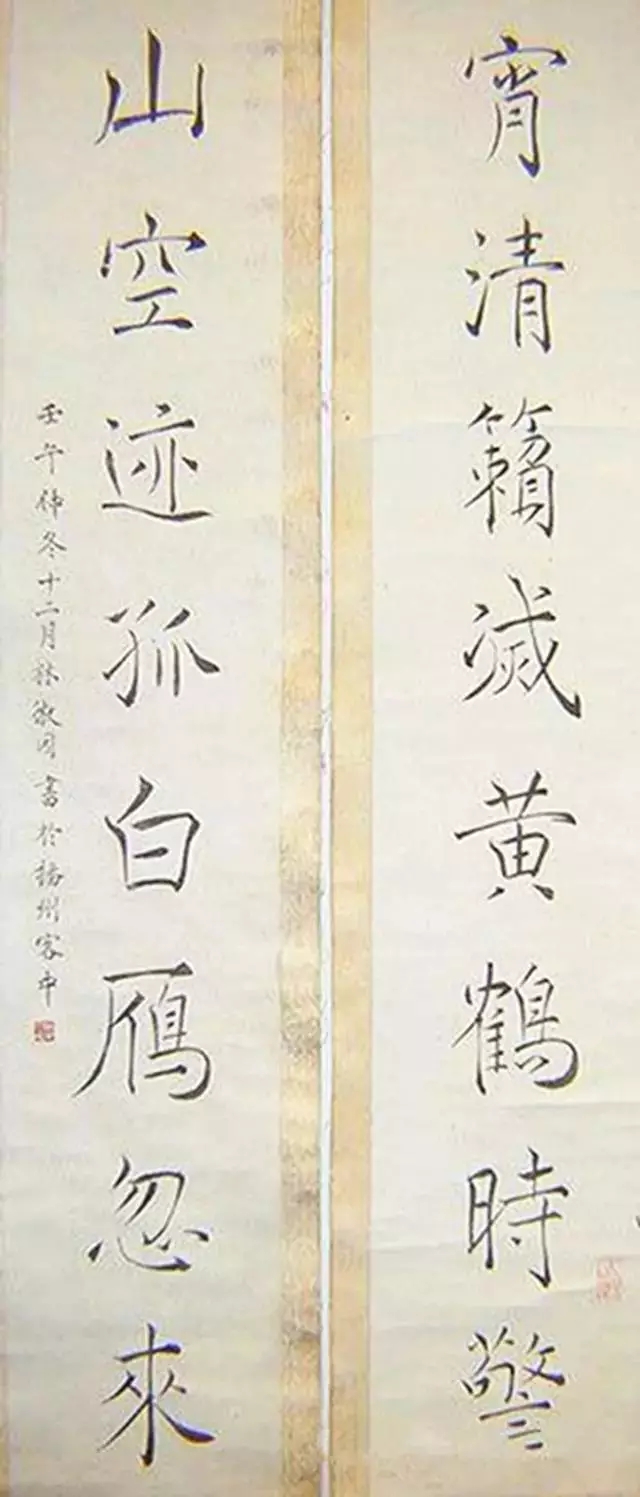 宵清籟滅黃鶴時警
山空迹孤白鴈忽來
壬午伟冬十二月林散因書於揚州客中